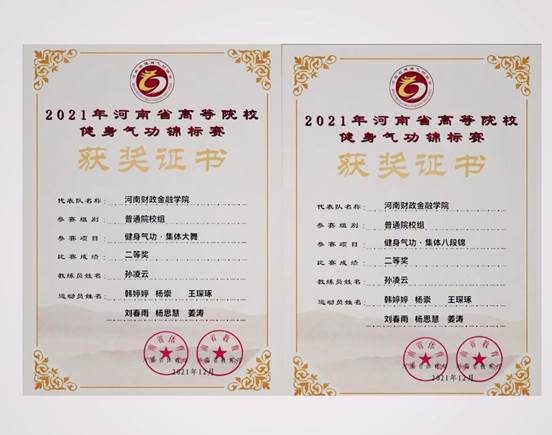 2021年河南省高等院校
健身气功锦标赛
获奖证书
代表队名称： 河南财政金融学院
参赛组别： 普通院校组
参赛项目： 健身气功·集体大舞
比赛成绩： 二等奖
教练员姓名： 孙凌云
运动员姓名： 韩婷婷 杨崇 王琛琢
刘春雨 杨思慧 姜涛
2021年12月
2021年河南省高等院校
健身气功锦标赛
获奖证书
代表队名称： 河南财政金融学院
参赛组别： 普通院校组
参赛项目： 健身气功·集体八段锦
比赛成绩： 二等奖
教练员姓名： 孙凌云
运动员姓名： 韩婷婷 杨崇 王琛琢
刘春雨 杨思慧 姜涛
2021年12月